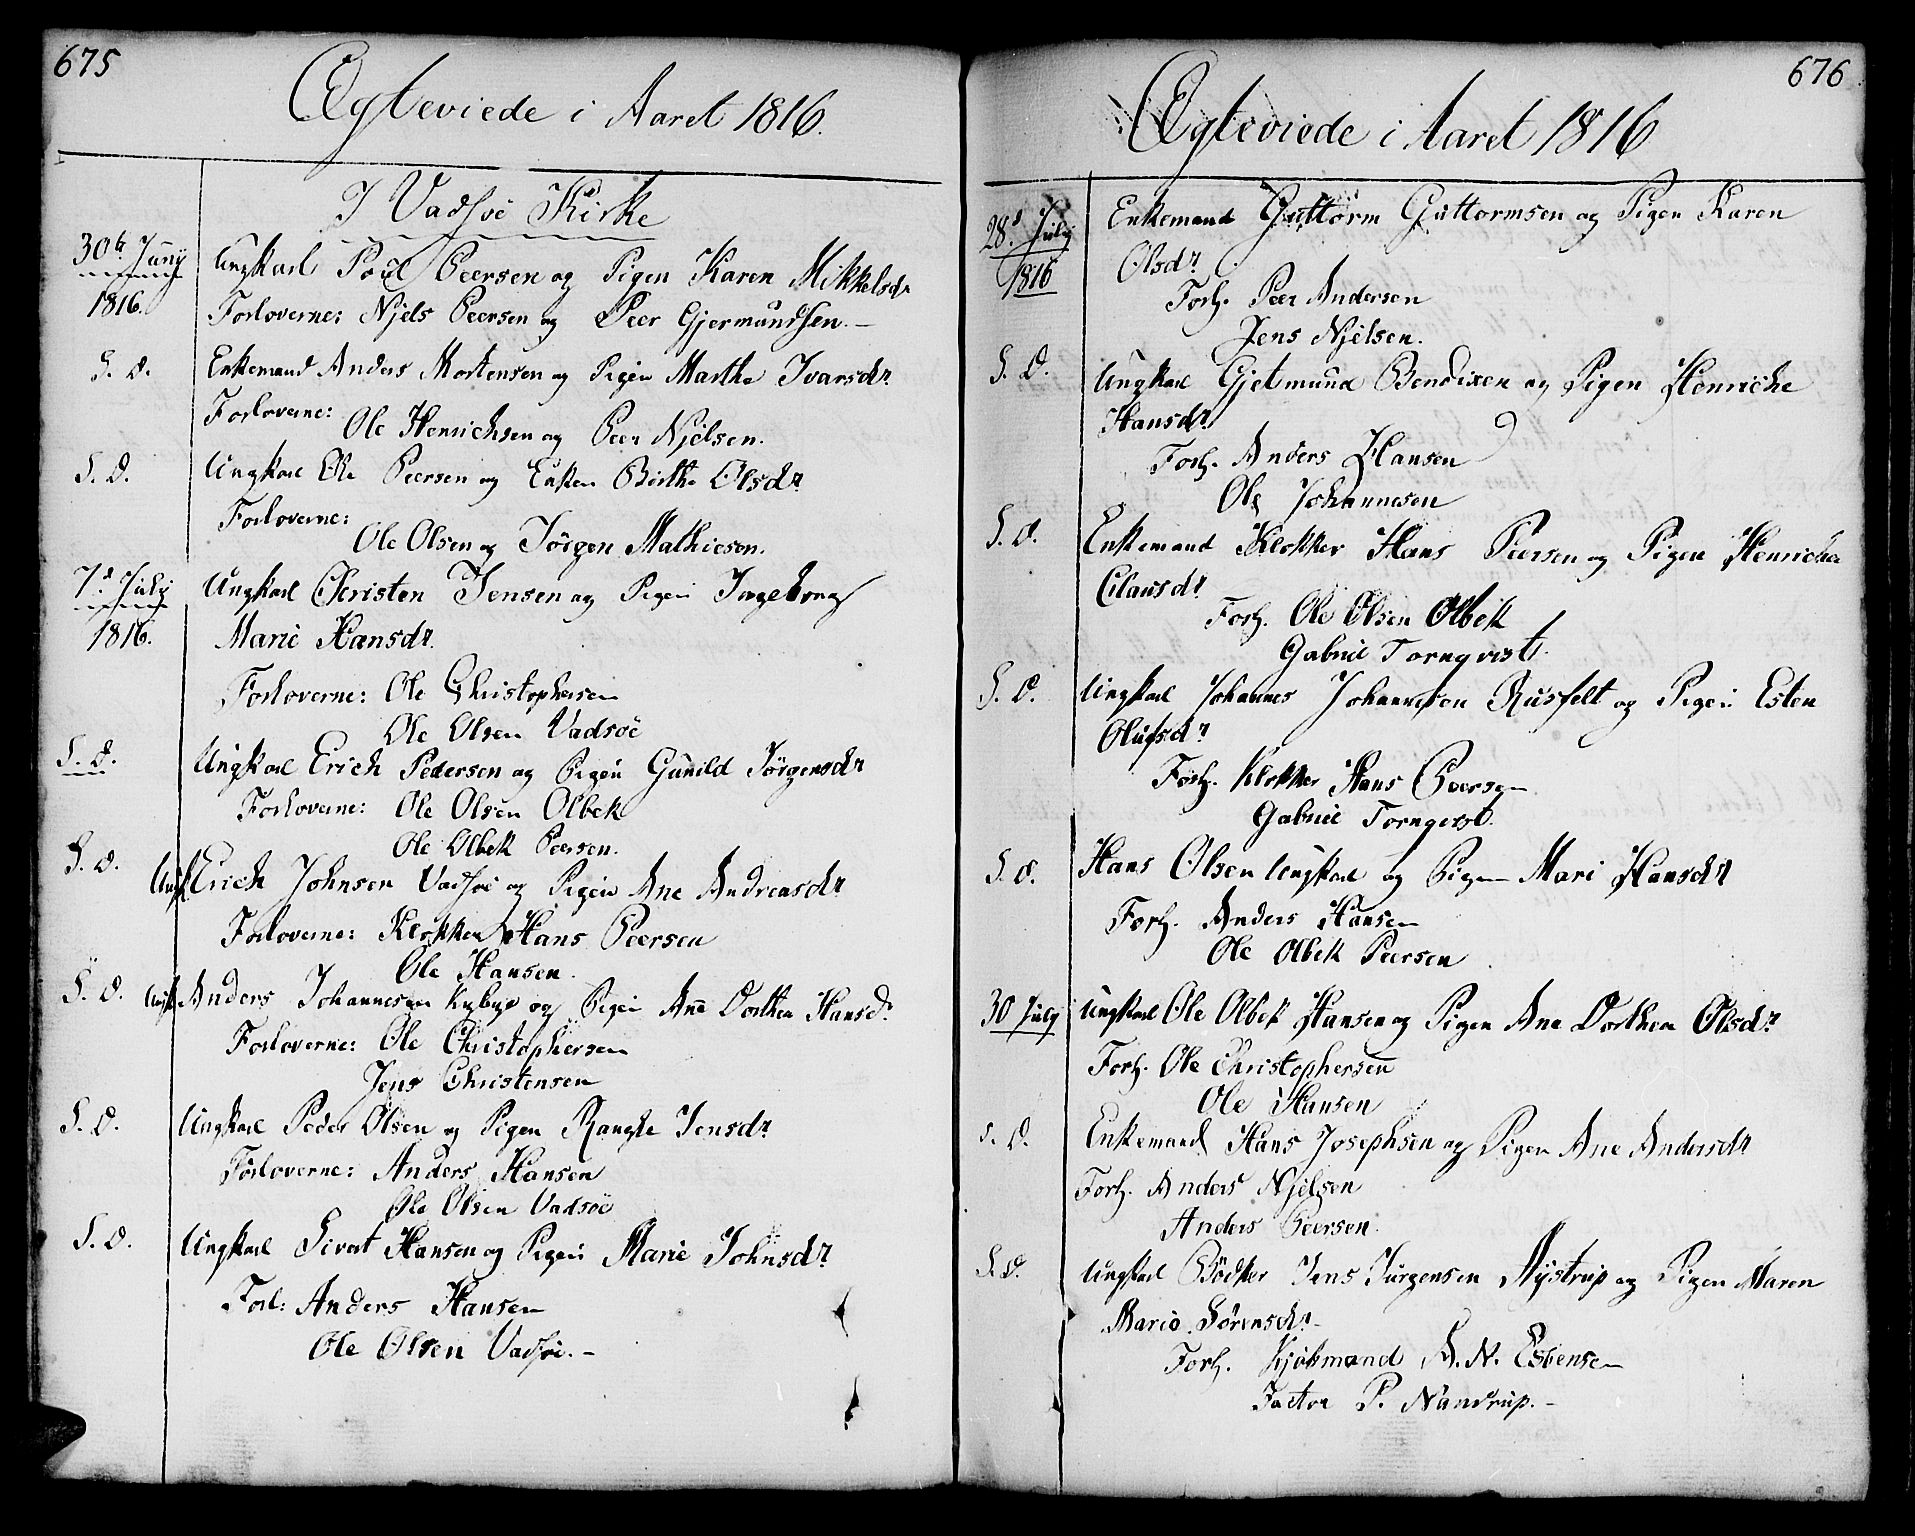 675
Ægteviede i Aaret 1816.
I Vadsøe Kirke
30te Junij Ungkarl Poul Peersen og Pigen Karen Mikkelsdr
1816. Forloverne: Njels Peersen og Peer Gjermundsen. —
S. D. Enkemand Anders Mortensen og Pigen Marthe Ivarsdr.
Forloverne: Ole Henrichsen og Peer Njelsen.
S. D. Ungkarl Ole Peersen og Enken Birthe Olsdr.
Forloverne:
Ole Olsen og Jørgen Mathiesen.
7d. Julij Ungkarl Christen Jensen og Pigen Ingeborg
1816. Marie Hansdr.
Forloverne: Ole Christophersen
Ole Olsen Vadsøe
S. D. Ungkarl Erich Pedersen og Pigen Gunild Jørgensdr
Forloverne: Ole Olsen Olbek
Ole Olbek Peersen.
S. D. Ungk. Erich Johnsen Vadsøe og Pigen Ane Andreasdr
Forloverne: Klokker Hans Peersen
Ole Hansen.
S. D. Ungk. Anders Johannesen Kybye og Pigen Ane Dorthea Hansd.
Forloverne: Ole Christophersen
Jens Christensen
S. D. Ungkarl Peder Olsen og Pigen Jensdr.
Forloverne: Anders Hansen
Ole Olsen Vadsøe
S. D. Ungkarl Sivert Hansen og Pigen Marie Johnsdr.
Forl: Anders Hansen
Ole Olsen Vadsøe. —
676
Ægteviede i Aaret 1816
28d. Julij Enkemand Guttorm Guttormsen og Pigen Karen
1816 Olsdr.
Forl. Peer Andersen
Jens Njelsen.
S. D. Ungkarl Gjetmund Bendixen og Pigen Henriche
Hansdr.
Forl. Anders Hansen
Ole Johannesen
S. D. Enkemand Klokker Hans Peersen og Pigen Henricha
Clausdr.
Forl. Ole Olsen Olbek
Gabriel Tornqvist.
S. D. Ungkarl Johannes Johannesen Rusfelt og Pigen Esten
Olufsdr
Forl. Klokker Hans Peersen
Gabriel Tornqvist.
S. D. Hans Olsen Ungkarl og Pigen Mari Hansdr
Forl. Anders Hansen
Ole Olbek Peersen
30 Julij Ungkarl Ole Olbek Hansen og Pigen Ane Dorthea Olsdr.
Forl. Ole Christophersen
Ole Hansen
S. D. Enkemand Hans Josephsen og Pigen Ane Andersdr
Forl. Anders Njelsen
Anders Peersen.
S. D. Ungkarl Bödker Jens Jürgensen Nystrup og Pigen Maren
Marie Sörensdr. —
Forl. Kjøbmand A. N. Esbensen
Factor P. Nandrup. —